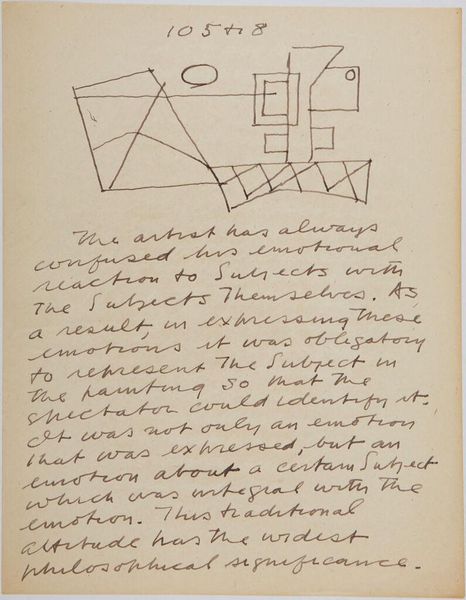 105+18
The artist has always
confused his emotional
reaction to Subjects with
the Subjects Themselves. As
a result, in expressing these
emotions it was obligatory
to represent The Subject in
the painting so that the
spectator could identify it.
It was not only an emotion
that was expressed, but an
emotion about a certain Subject
which was integral with the
emotion. This traditional
attitude has the widest
philosophical significance.